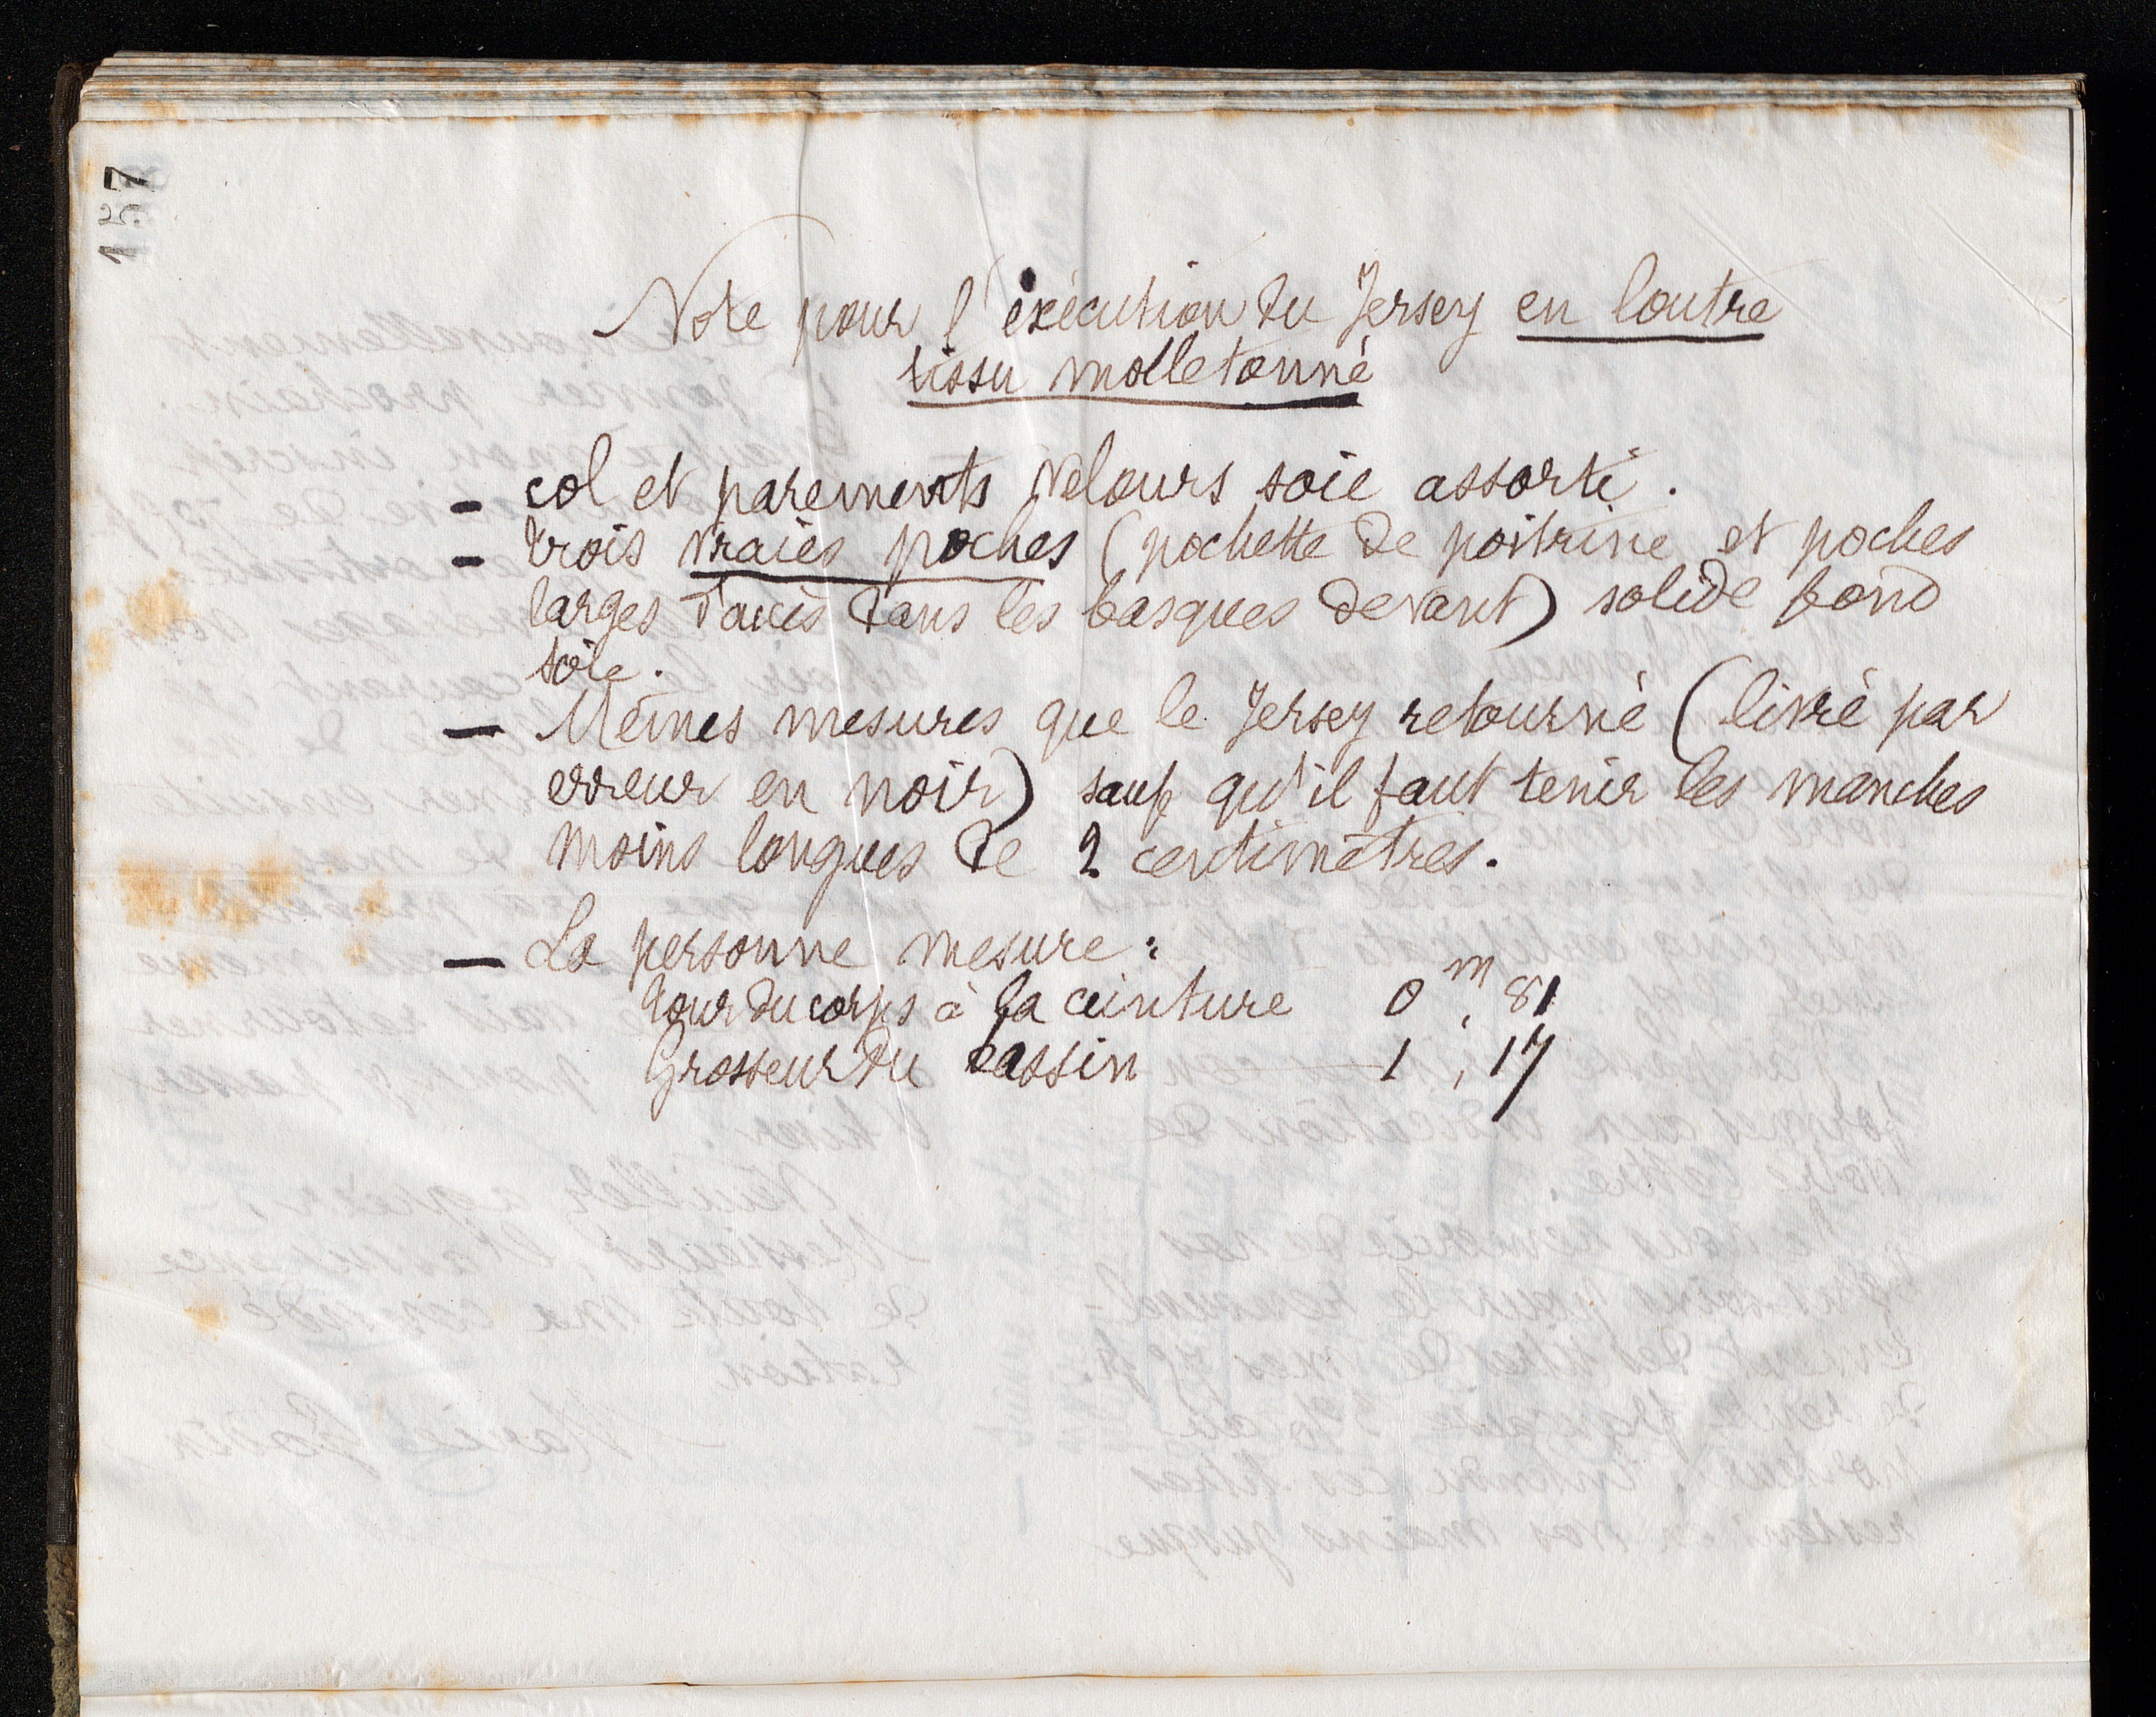 157
Note pour l'exécution du Jersey en loutre
tissu molletonné
- col et parements velours soie assorti.
- trois vraies poches (pochette de poitrine et poches
larges dans les basques devant) solide fond
soie.
- Mêmes mesures que le Jersey retourné (livré par
erreur en noir) sauf qu'il faut tenir les manches
moins longues de 2 centimètres.
- La personne mesure :
tour du corps à la ceinture 0 m, 81
Grosseur du bassin 1, 17